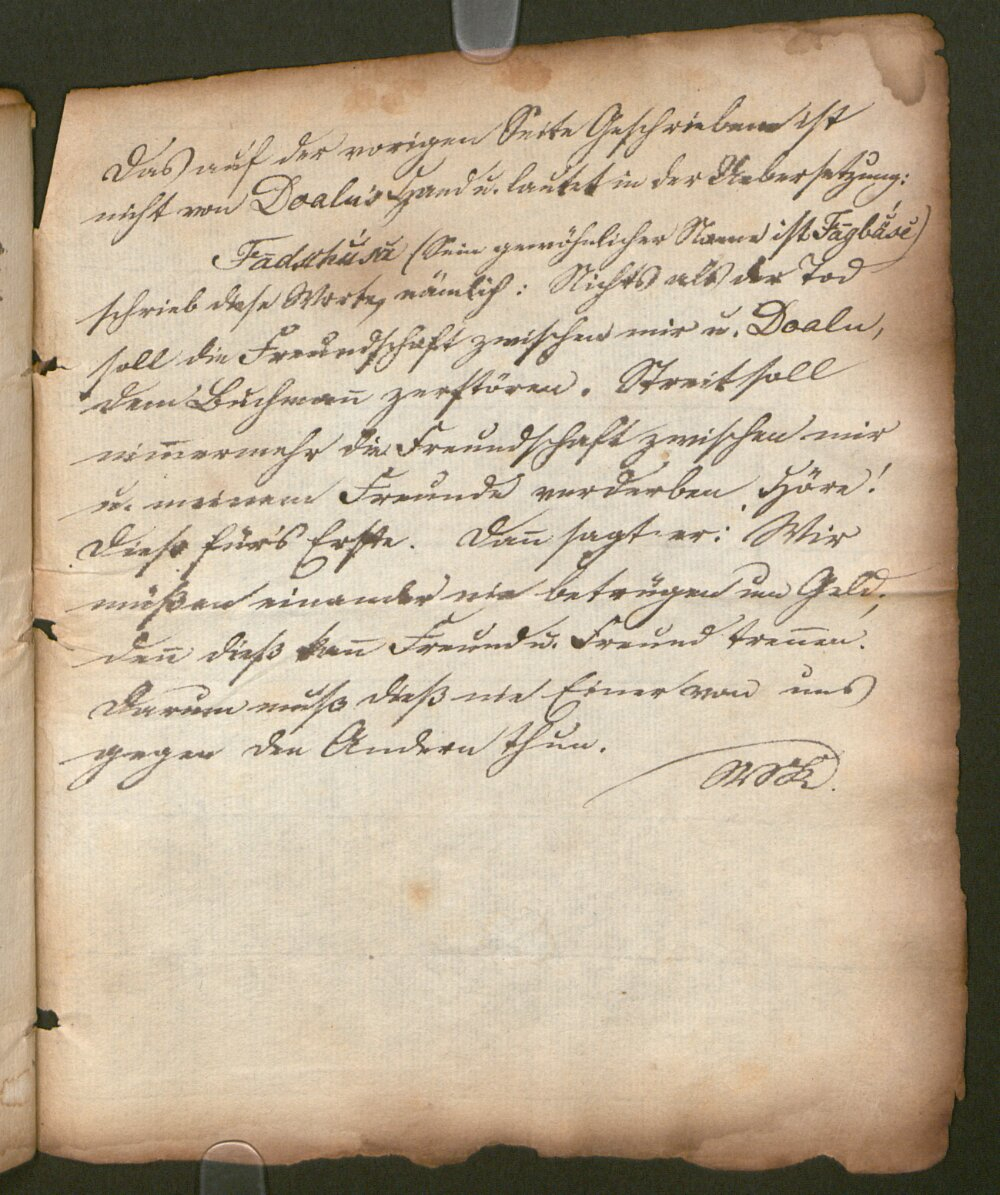 Das auf der vorigen Seite Geschriebene ist
nicht von Doalu's Hand u. lautet in der Uebersetzung:
(Sein gewöhnlicher Name ist Fāgbāsi)
schrieb diese Worte, nämlich: Nichts als der Tod
soll die Freundschaft zwischen mir u. Doalu,
dem Buchmañ zerstören. Streit soll
nim̄ermehr die Freundschaft zwischen mir
u. meinem Freunde verderben Höre!
Dieß für's Erste. Dañ sagt er: Wir
müßen einander nie betrügen um Geld;
deñ dieß kañ Freund u. Freund treñen.
Darum muß dieß nie Einer von uns
gegen den Andern thun.